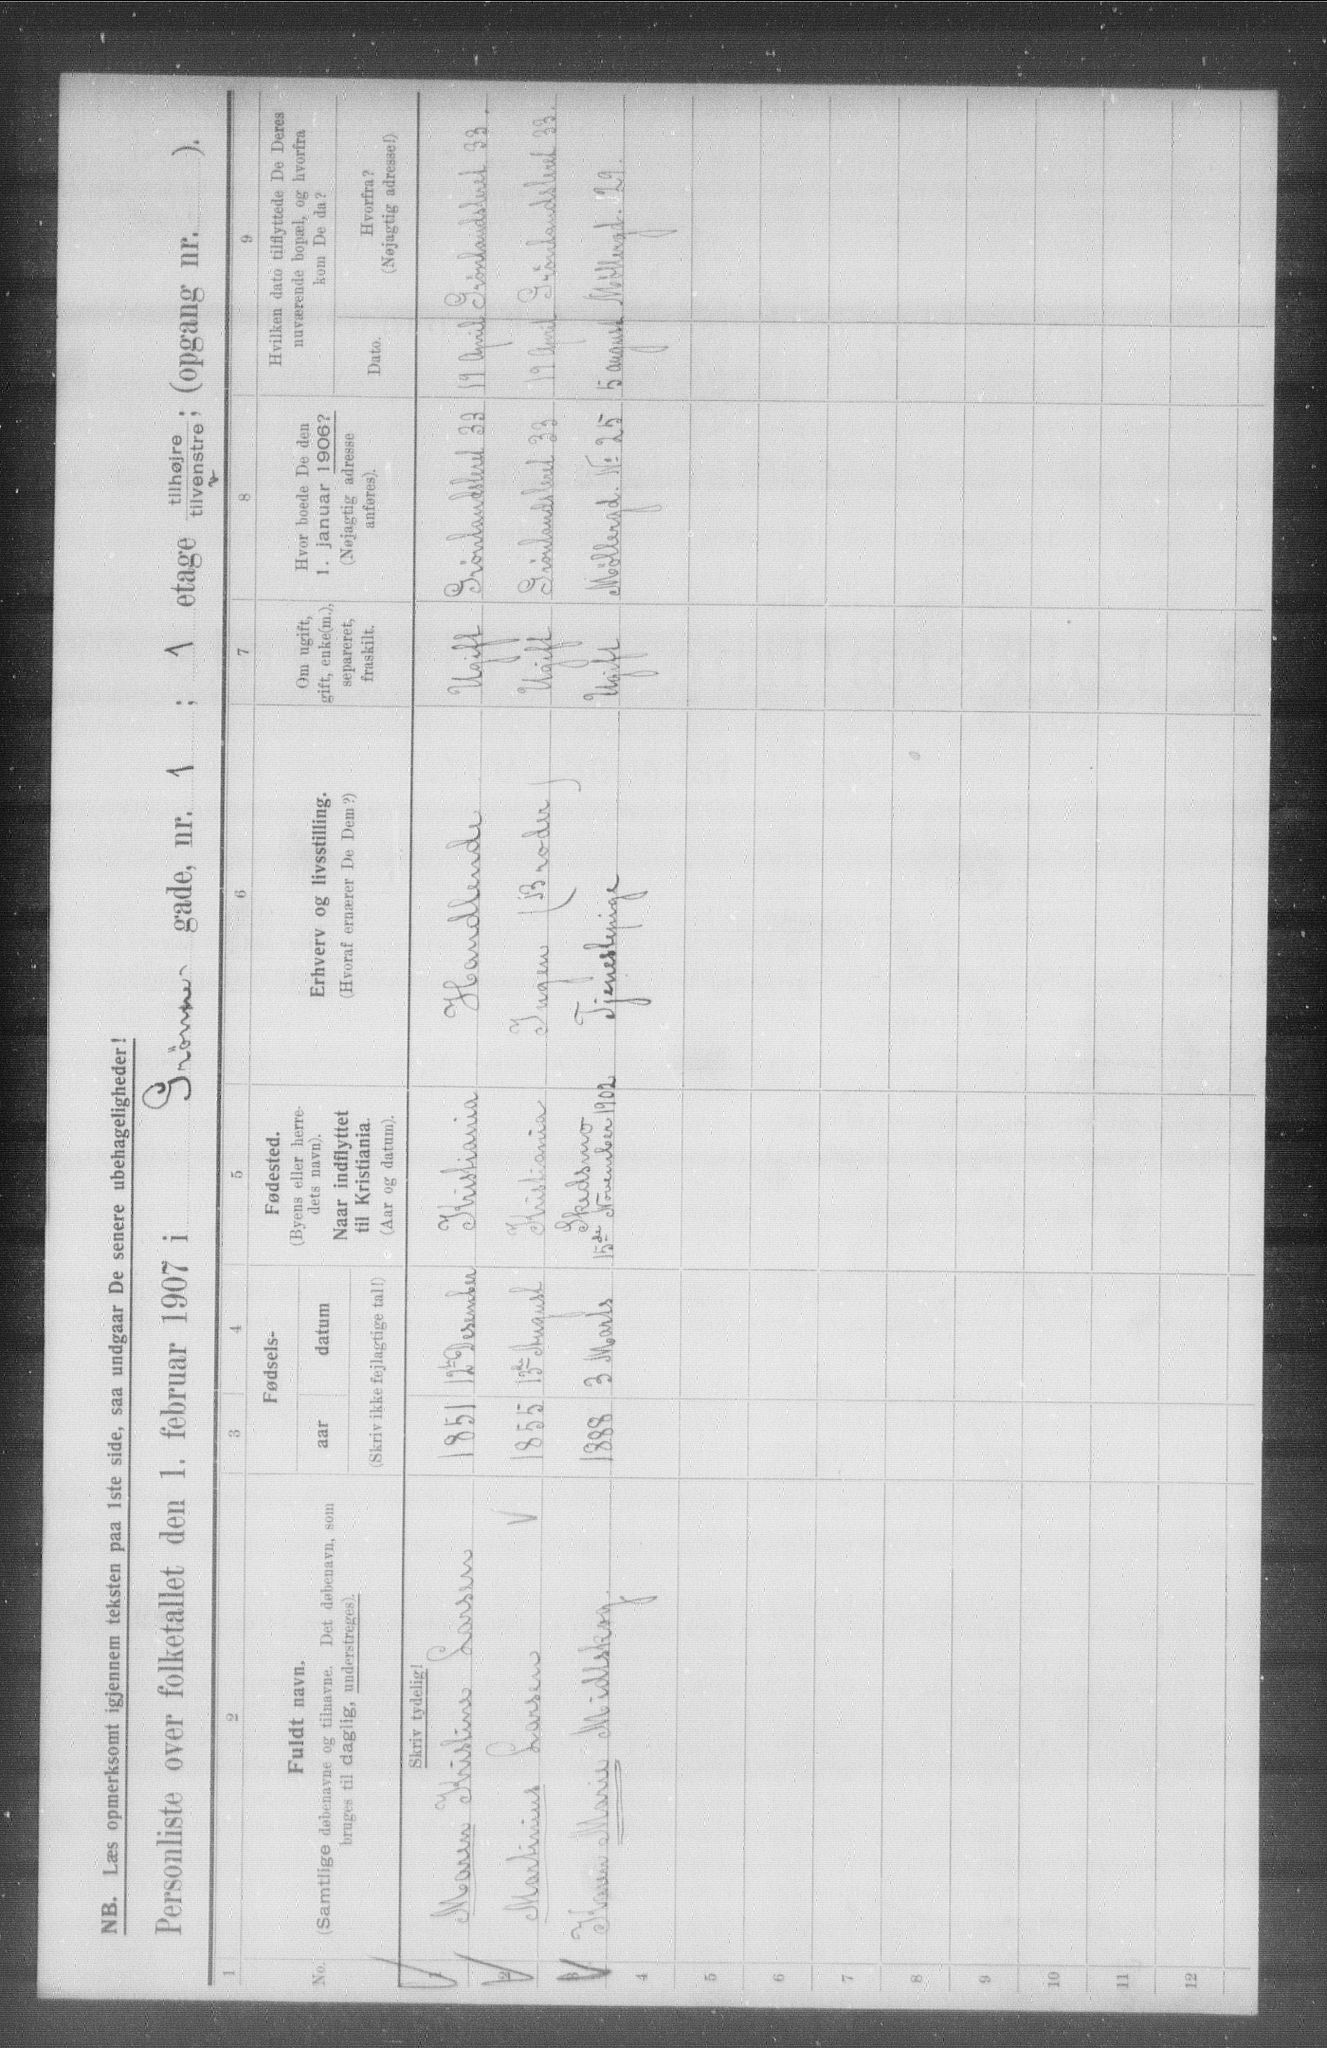 NB. Læs opmerksomt igjennem teksten paa 1ste side, saa undgaar De senere ubehageligheder!
Personliste over folketallet den 1. februar 1907 i Grønne gade, nr. 1 ; 1 etage tilhøjre / tilvenstre ; (opgang nr. ).
1 2 3 4 5 6 7 8 9
No.
Fuldt navn,
(Samtlige døbenavne og tilnavne. Det døbenavn, som
bruges til daglig, understreges).
Fødsels-
aar datum
(Skriv ikke fejlagtige tal!)
Fødested.
(Byens eller herre-
dets navn).
Naar indflyttet
til Kristiania.
(Aar og datum).
Erhverv og livsstilling.
(Hvoraf ernærer De Dem?)
Om ugift,
gift, enke(m.),
separeret,
fraskilt.
Hvor boede De den
1. januar 1906?
(Nøjagtig adresse
anføres).
Hvilken dato tilflyttede De Deres
nuværende bopæl, og hvorfra
kom De da?
Dato.
Hvorfra?
(Nøjagtig adresse!)
Skriv tydelig!
1 Maren Kristine Larsen 1851 12te Desember Kristiania Handlende Ugift Grönlandsleret 33 19 April Grönlandsleret 33.
2 Martinius Larsen V 1855 13de August Kristiania Ingen (Broder) Ugift Grönlandsleret 33 19 April Grönlandsleret 33.
3 Karen Marie Midtskog. 1888 3 Marts Skedsmo 15de November 1902 Tjenestepige Ugift Møllergd. No 25 5 august Møllergd. 29.
4
5
6
7
8
9
10
11
12